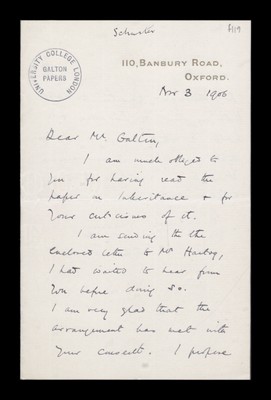 Schuster
UNIVERSITY COLLEGE LONDON
GALTON
PAPERS
110, BANBURY ROAD,
OXFORD.
Nov 3 1906
Dear Mr. Galton,
I am much obliged to
you for having read the
paper on Inheritance & for
your criticisms of it.
I am sending the
enclosed letter to Mr Hartog,
I had waited to hear from
you before doing so.
I am very glad that the
arrangement has met with
your consent. I propose